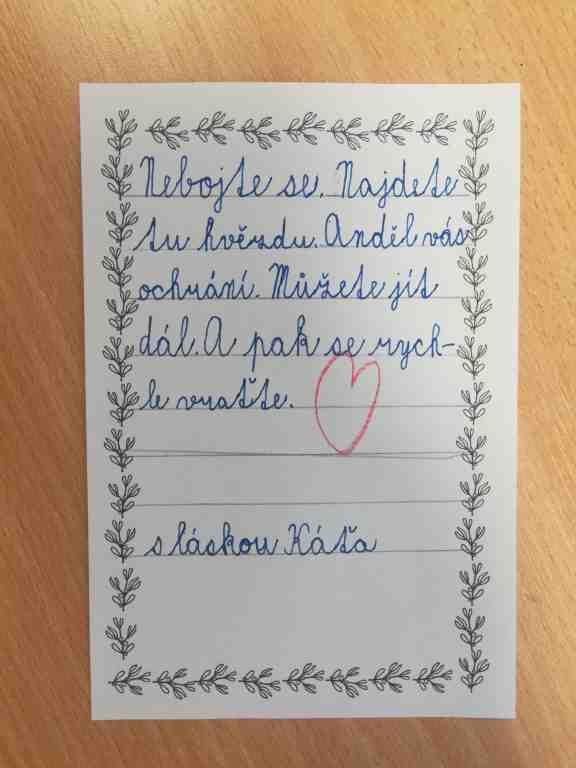 Nebojte se. Najdete
tu hvězdu. Anděl vás
ochrání. Můžete jít
dál. A pak se rych-
le vraťte.
s láskou Káťa